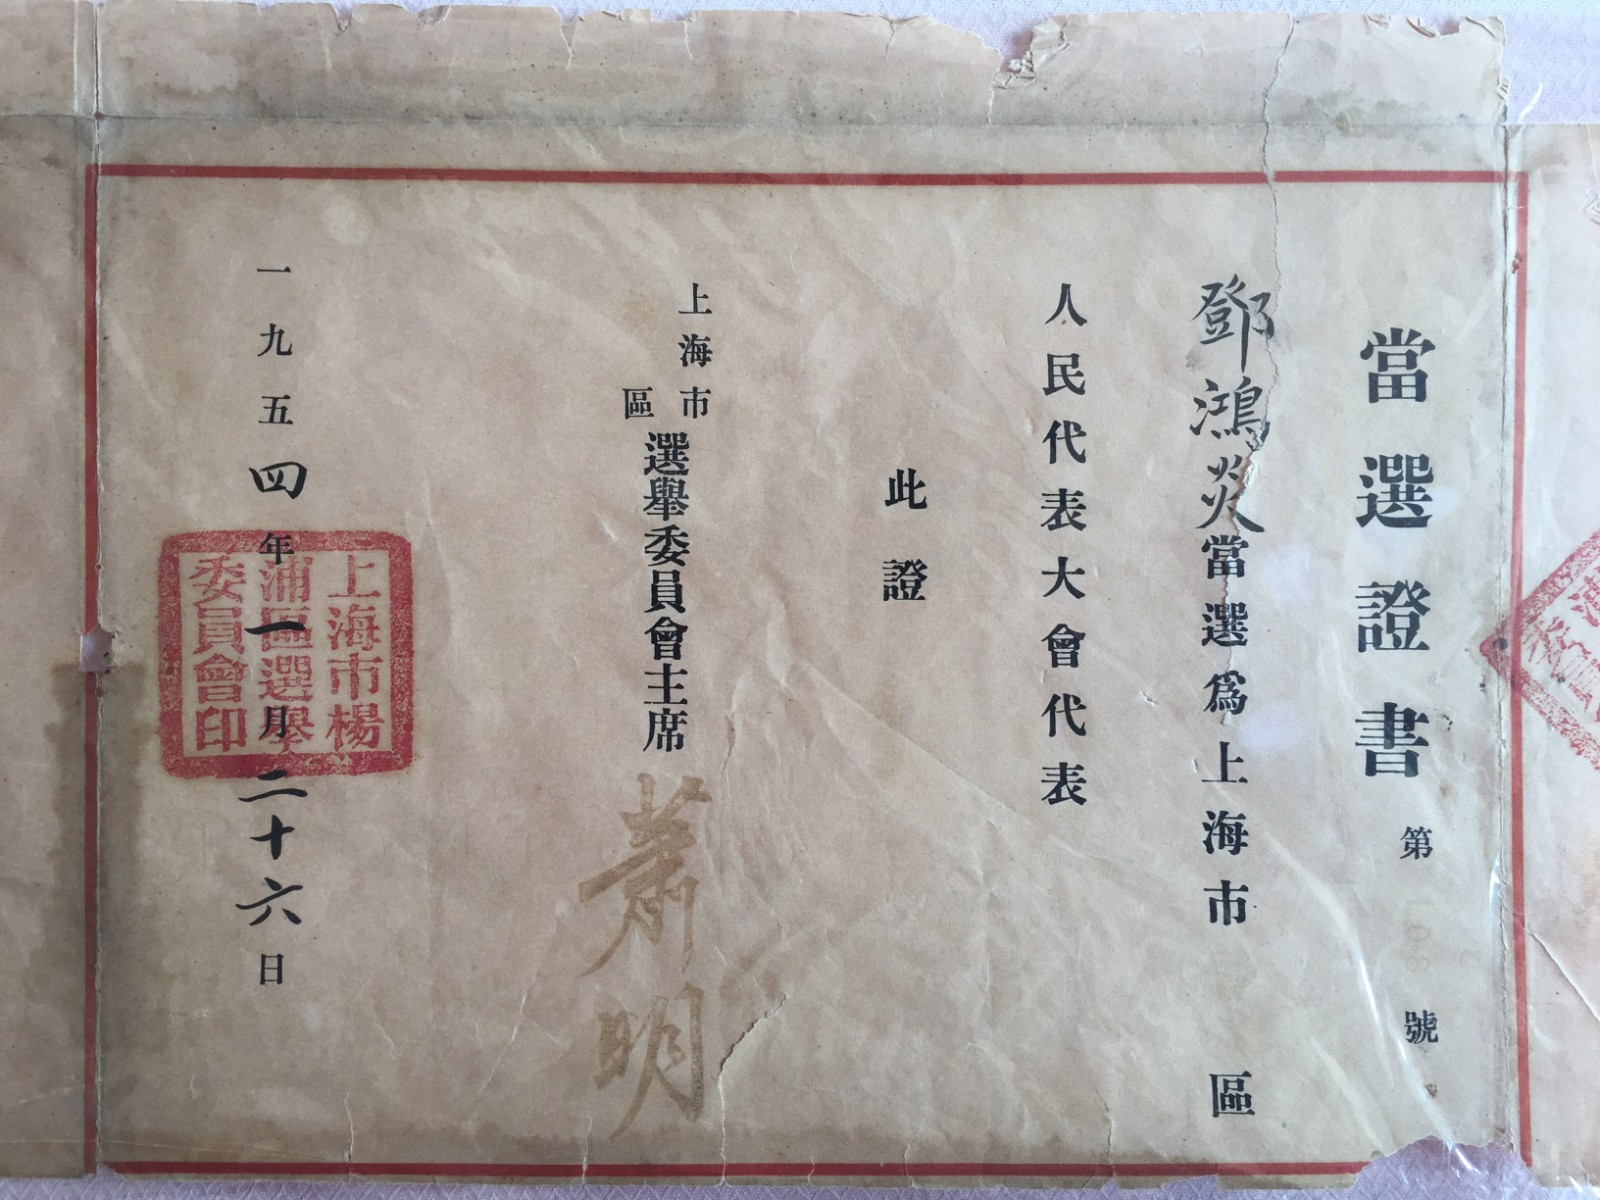 當選證書
第 號
鄧鴻炎當選爲上海市 區
人民代表大會代表
此證
上海市
區
選舉委員會主席
蕭明
一九五四年一月二十六日
上海市楊
浦區選舉
委員會印